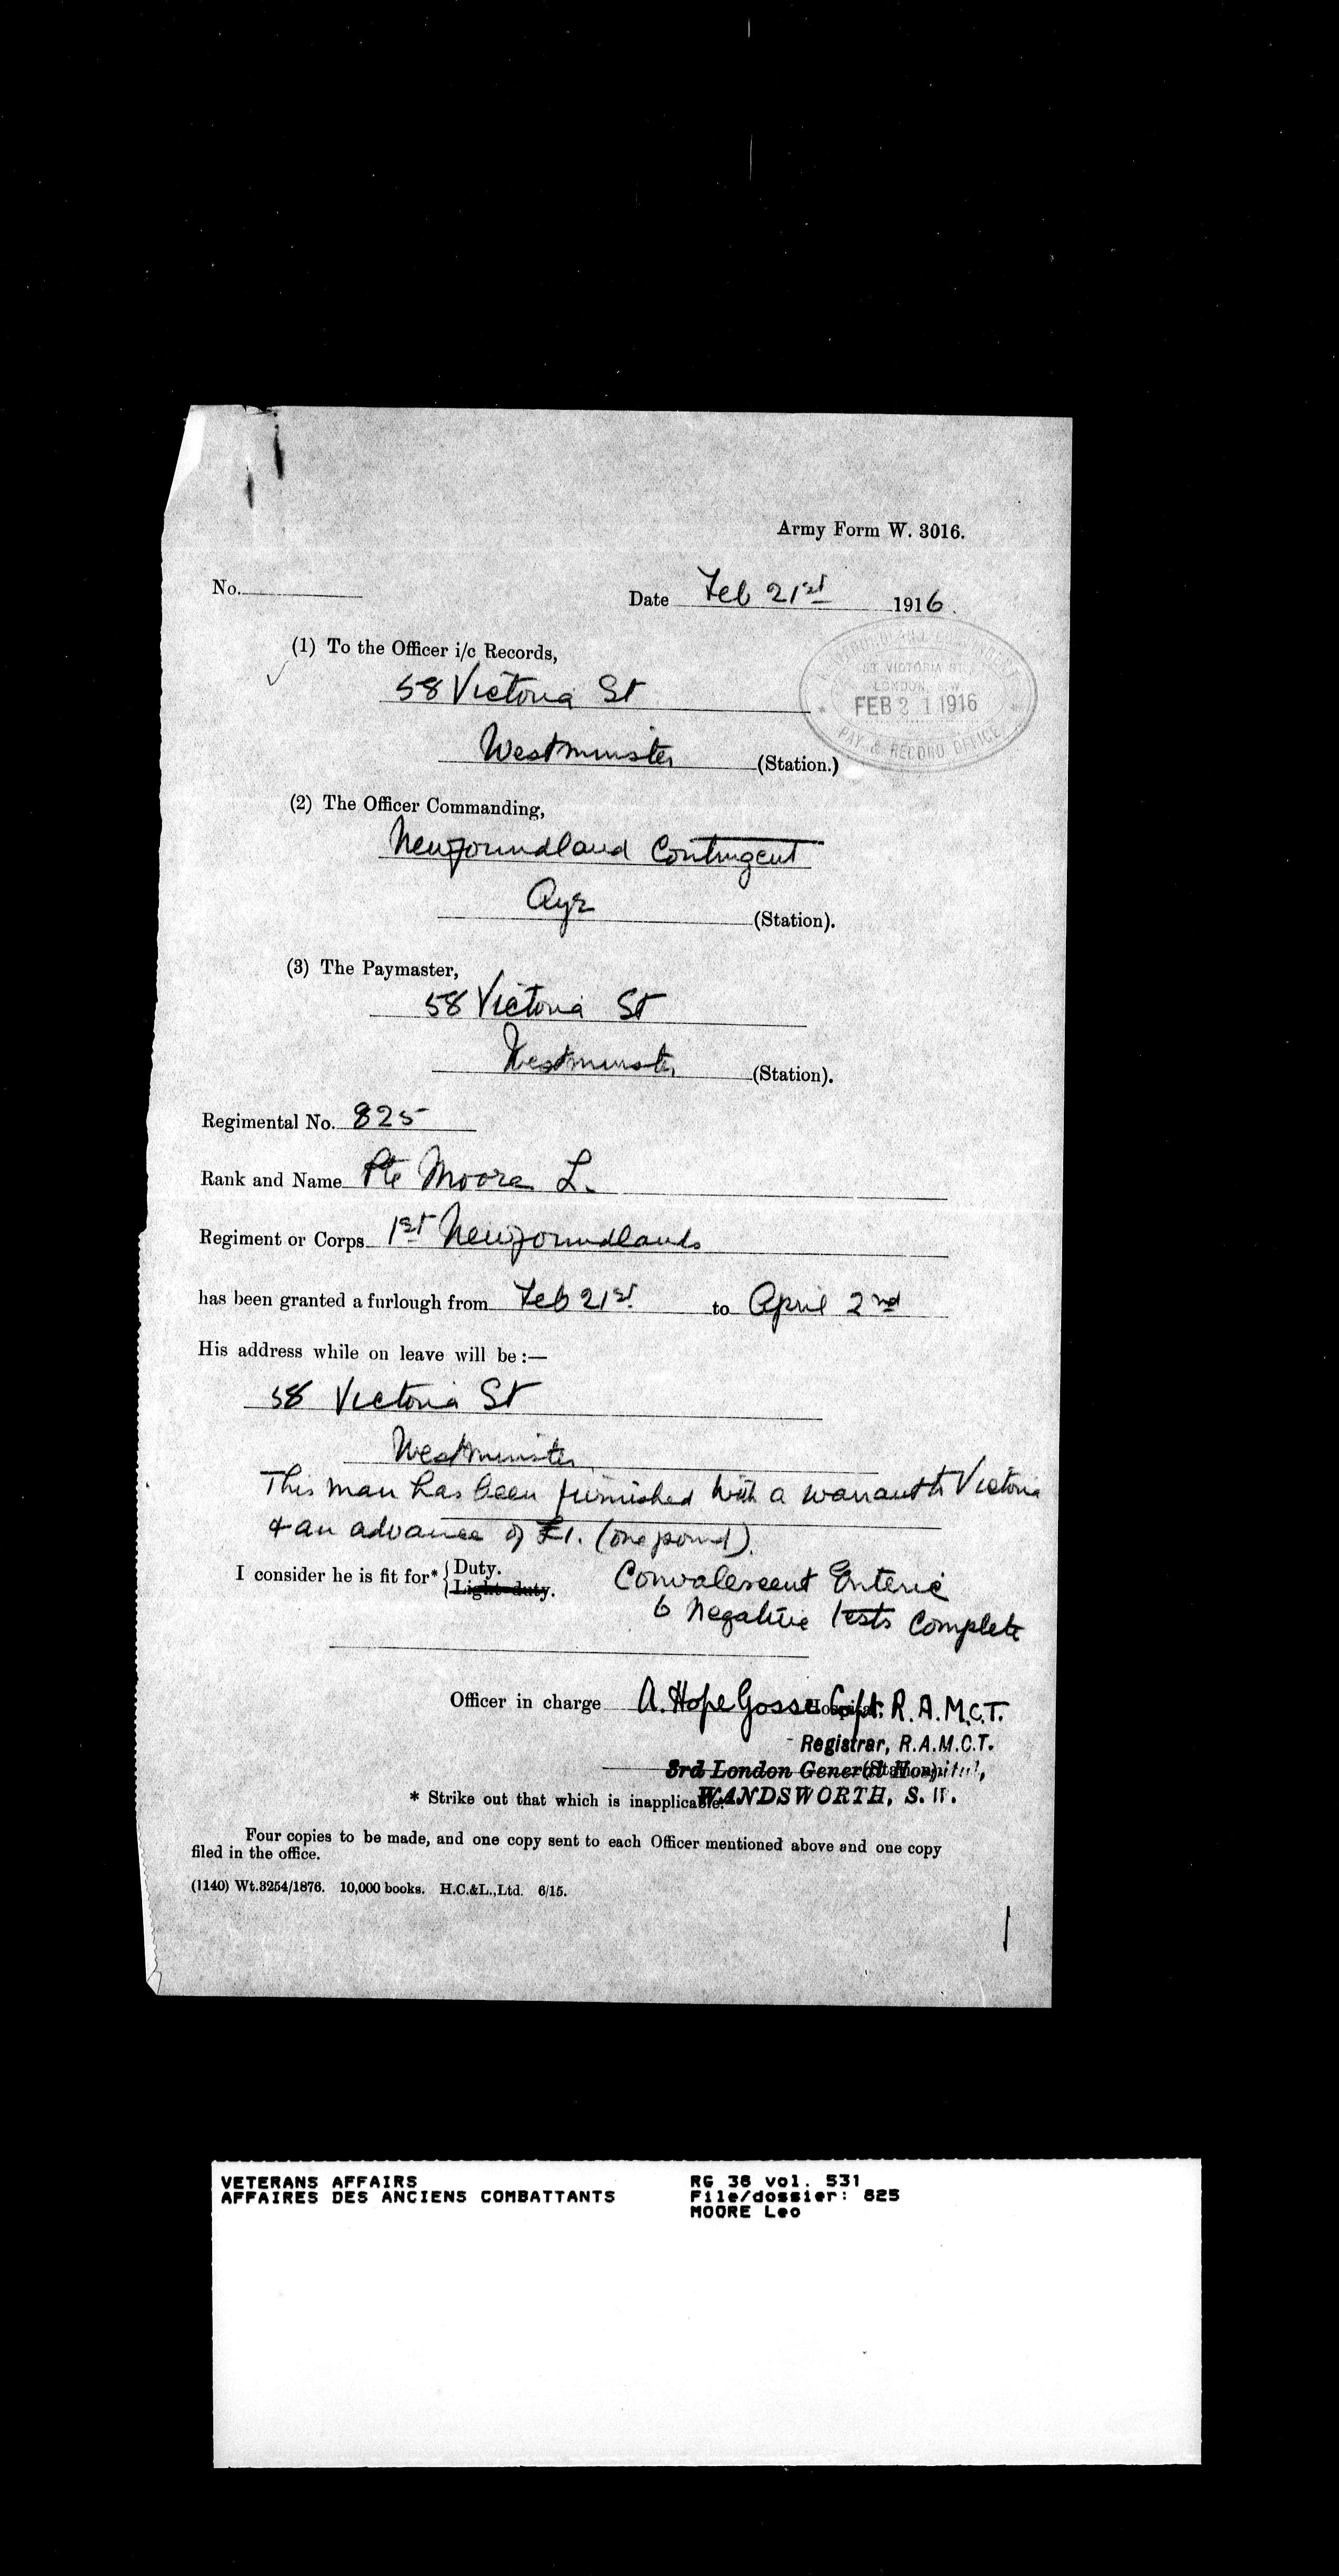 Army Form W. 3016.
No.
Date Feb 21st 1916.
(1) To the Officer i/c Records,
58 Victoria St
Westminster (Station.)
NEWFOUNDLAND CONTINGENT
58 VICTORIA ST.
LONDON, S.W.
FEB 21 1916
PAY & RECORD OFFICE
(2) The Officer Commanding,
Newfoundland Contingent
Ayr (Station).
(3) The Paymaster,
58 Victoria St
Westminster (Station).
Regimental No. 825
Rank and Name Pte Moore L.
Regiment or Corps 1st Newfoundlands
has been granted a furlough from Feb 21st to April 2nd
His address while on leave will be:—
58 Victoria St
Westminster
This man has been furnished with a warrant to Victoria
& an advance of £1. (one pound).
I consider he is fit for* { Duty. Convalescent Enteric
Light duty. 6 Negative tests complete
Officer in charge A. Hope Gosse Capt. R.A.M.C.T. Hospital,
Registrar, R.A.M.C.T.
3rd London General Hospital, (Station).
* Strike out that which is inapplicable. WANDSWORTH, S.W.
Four copies to be made, and one copy sent to each Officer mentioned above and one copy
filed in the office.
(1140) Wt.3254/1876. 10,000 books. H.C.&L.,Ltd. 6/15.
VETERANS AFFAIRS RG 38 vol. 531
AFFAIRES DES ANCIENS COMBATTANTS File/dossier: 825
MOORE Leo